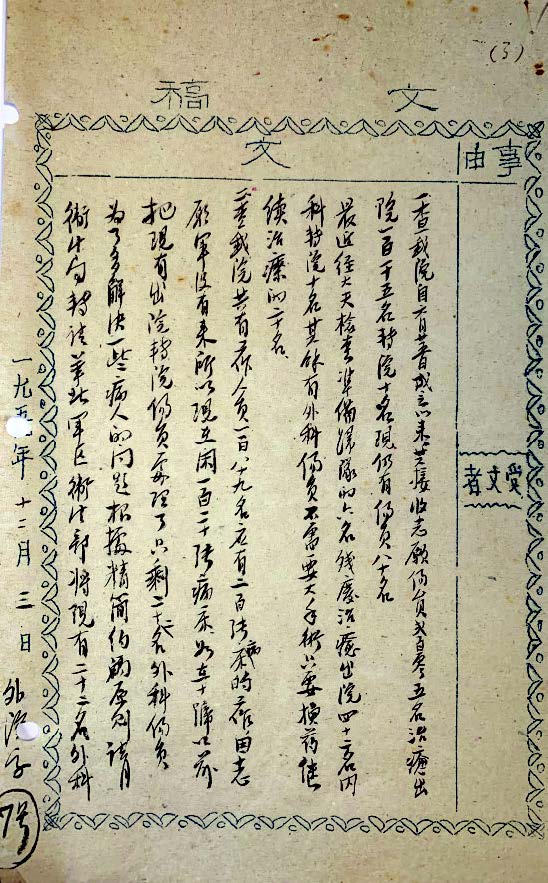 (3)
文稿
事由
文
受文者
一查我院自六月廿日成立以来共接收志愿伤员弍百零五名治癒出
院一百十五名转院十名现仍有伤员八十名
最近经大夫检查准备归队的六名残废治癒出院四十二名内
科转院十名其馀有外科伤员不需要大手术只要换药继
续治疗的二十名
二查我院共有工作人员一百八十九名应有二百张病床的工作由志
愿军没有来所以现在闲一百二十张病床如在十号以前
把现有出院转院伤员处理了只剩二十名外科伤员
为了多解决一些病人的问题根据精简节约的原则请
卫生局转请华北军区卫生部将现有二十二名外科
一九五 年 十二月 三 日 外 字
7号